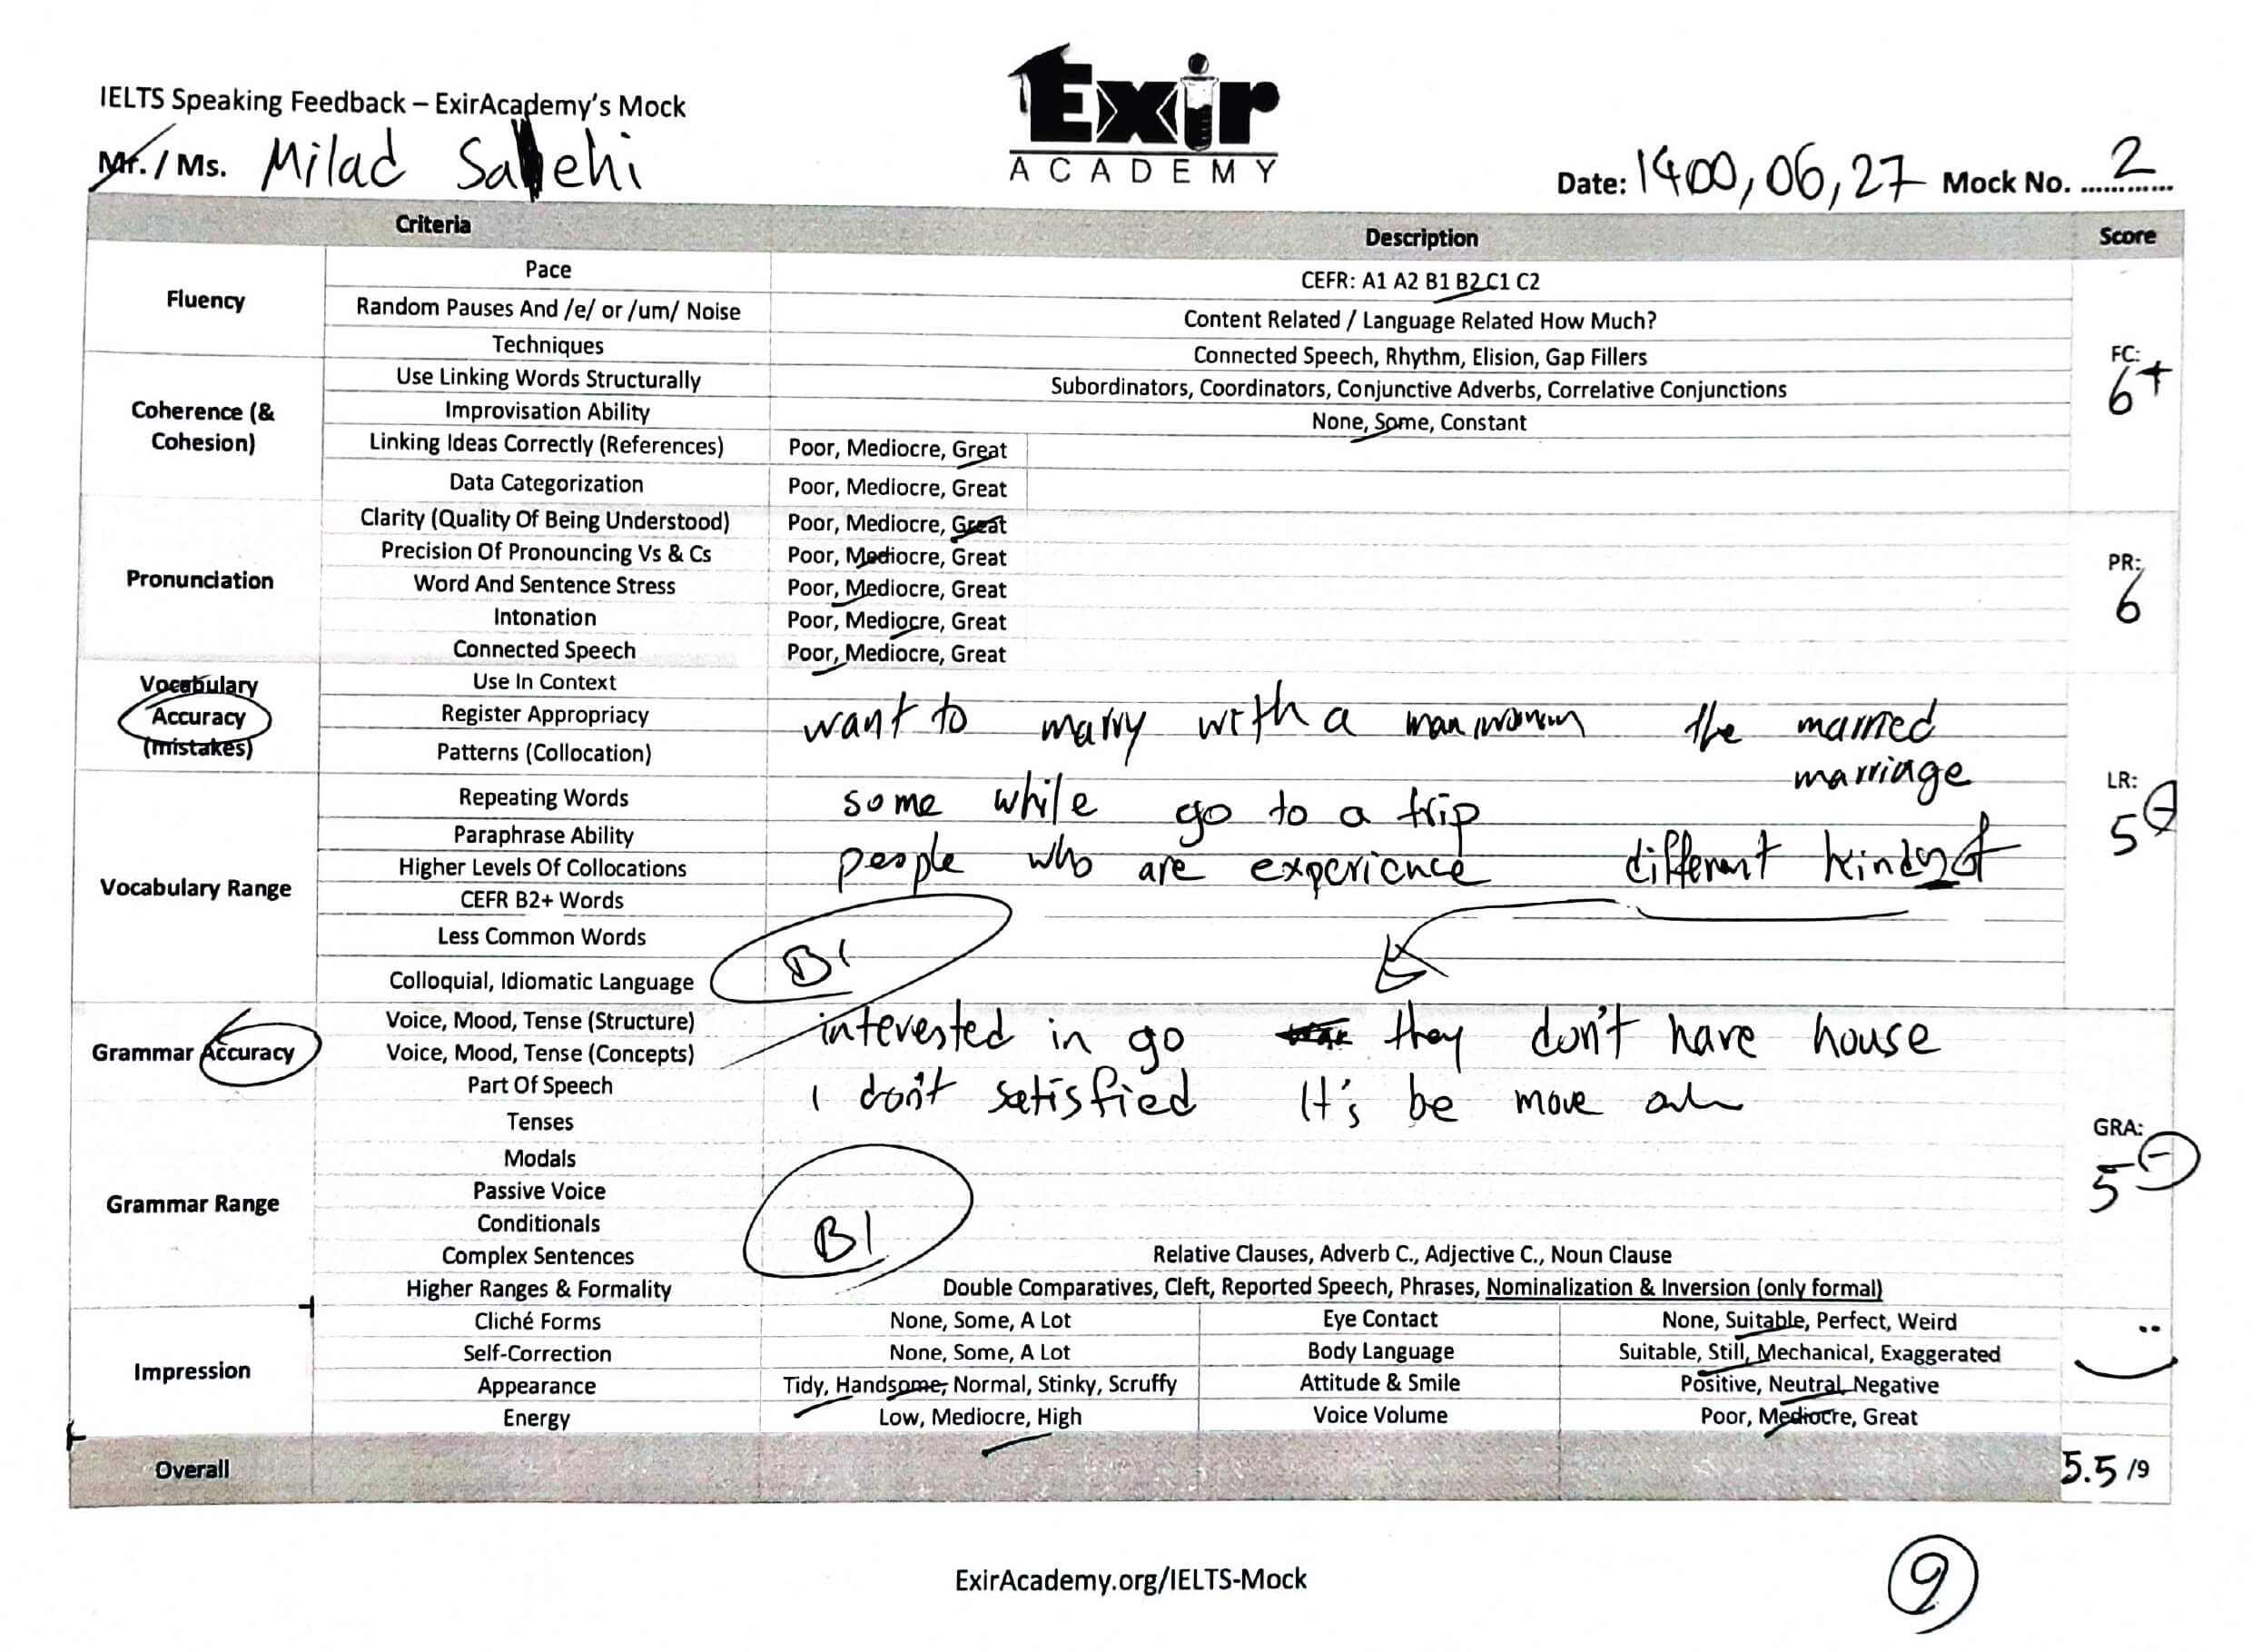 IELTS Speaking Feedback – ExirAcademy's Mock
Exir
ACADEMY
Mr. / Ms. Milad Salehi
Date: 1400,06,27 Mock No. 2
Criteria Description Score
Fluency
Pace CEFR: A1 A2 B1 B2 C1 C2
Random Pauses And /e/ or /um/ Noise Content Related / Language Related How Much?
Techniques Connected Speech, Rhythm, Elision, Gap Fillers
FC: 6+
Coherence (& Cohesion)
Use Linking Words Structurally Subordinators, Coordinators, Conjunctive Adverbs, Correlative Conjunctions
Improvisation Ability None, Some, Constant
Linking Ideas Correctly (References) Poor, Mediocre, Great
Data Categorization Poor, Mediocre, Great
Pronunciation
Clarity (Quality Of Being Understood) Poor, Mediocre, Great
Precision Of Pronouncing Vs & Cs Poor, Mediocre, Great
Word And Sentence Stress Poor, Mediocre, Great
Intonation Poor, Mediocre, Great
Connected Speech Poor, Mediocre, Great
PR: 6
Vocabulary Accuracy (mistakes)
Use In Context
Register Appropriacy want to marry with a man woman the married
Patterns (Collocation) marriage
Vocabulary Range
Repeating Words some while go to a trip
Paraphrase Ability
Higher Levels Of Collocations people who are experience different kinds of
CEFR B2+ Words
Less Common Words B1
Colloquial, Idiomatic Language
LR: 5-
Grammar Accuracy
Voice, Mood, Tense (Structure) interested in go they don't have house
Voice, Mood, Tense (Concepts)
Part Of Speech I don't satisfied It's be more
Grammar Range
Tenses
Modals
Passive Voice
Conditionals B1
Complex Sentences Relative Clauses, Adverb C., Adjective C., Noun Clause
Higher Ranges & Formality Double Comparatives, Cleft, Reported Speech, Phrases, Nominalization & Inversion (only formal)
GRA: 5-
Impression
Cliché Forms None, Some, A Lot Eye Contact None, Suitable, Perfect, Weird
Self-Correction None, Some, A Lot Body Language Suitable, Still, Mechanical, Exaggerated
Appearance Tidy, Handsome, Normal, Stinky, Scruffy Attitude & Smile Positive, Neutral, Negative
Energy Low, Mediocre, High Voice Volume Poor, Mediocre, Great
Overall 5.5 /9
ExirAcademy.org/IELTS-Mock
9